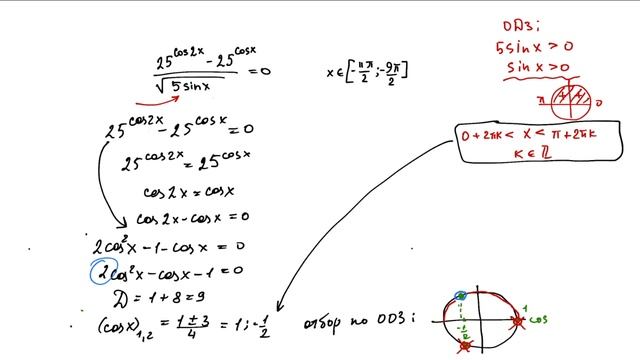 (25^cos2x − 25^cosx) / √(5sinx) = 0
x ∈ [−11π/2 ; −9π/2]
ОДЗ:
5sinx > 0
sinx > 0
π + + 0
0+2πk < x < π+2πk
k ∈ ℤ
25^cos2x − 25^cosx = 0
25^cos2x = 25^cosx
cos2x = cosx
cos2x − cosx = 0
2cos²x − 1 − cosx = 0
2cos²x − cosx − 1 = 0
D = 1 + 8 = 9
(cosx)₁,₂ = (1±3)/4 = 1 ; −1/2
отбор по ОДЗ:
−1/2 1 cos